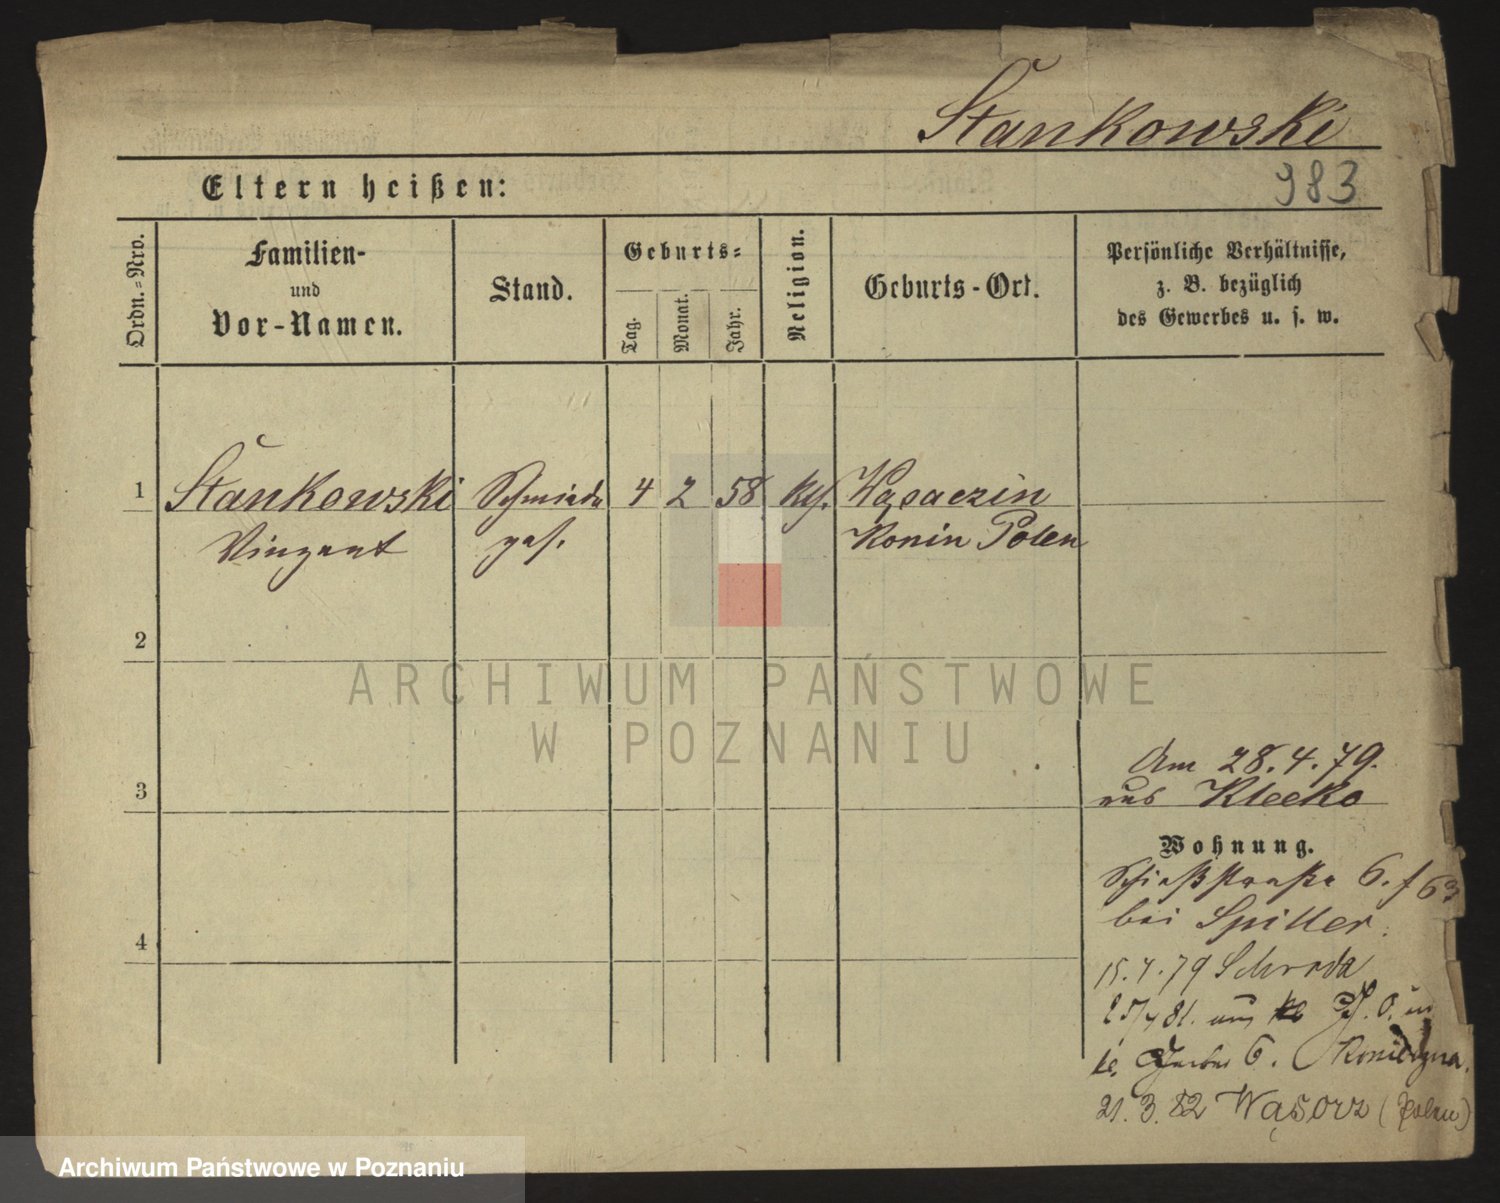 Stankowski
983
Eltern heißen:
Ordn.-Nro.
Familien-
und
Vor-Namen.
Stand.
Geburts-
Tag.
Monat.
Jahr.
Religion.
Geburts-Ort.
Persönliche Verhältnisse,
z. B. bezüglich
des Gewerbes u. s. w.
1
Stankowski Schmiede 4 2 58 kth.
Vinzent ges. Konin Polen
2
3
Am 28.4.79.
aus Klecko
Wohnung.
Schießstraße 6.
bei Spiller.
4
15.4.79 Schroda
21.3.82 Wąsosz (Polen)
ARCHIWUM PAŃSTWOWE
W POZNANIU
Archiwum Państwowe w Poznaniu